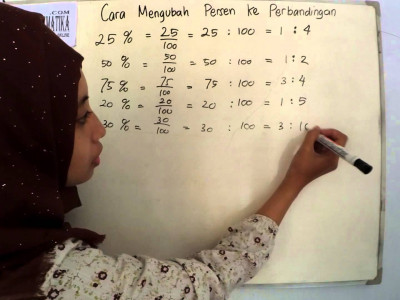 .COM
Cara Mengubah Persen ke Perbandingan
25 % = 25/100 = 25 : 100 = 1 : 4
50 % = 50/100 = 50 : 100 = 1 : 2
75 % = 75/100 = 75 : 100 = 3 : 4
20 % = 20/100 = 20 : 100 = 1 : 5
30 % = 30/100 = 30 : 100 = 3 : 10